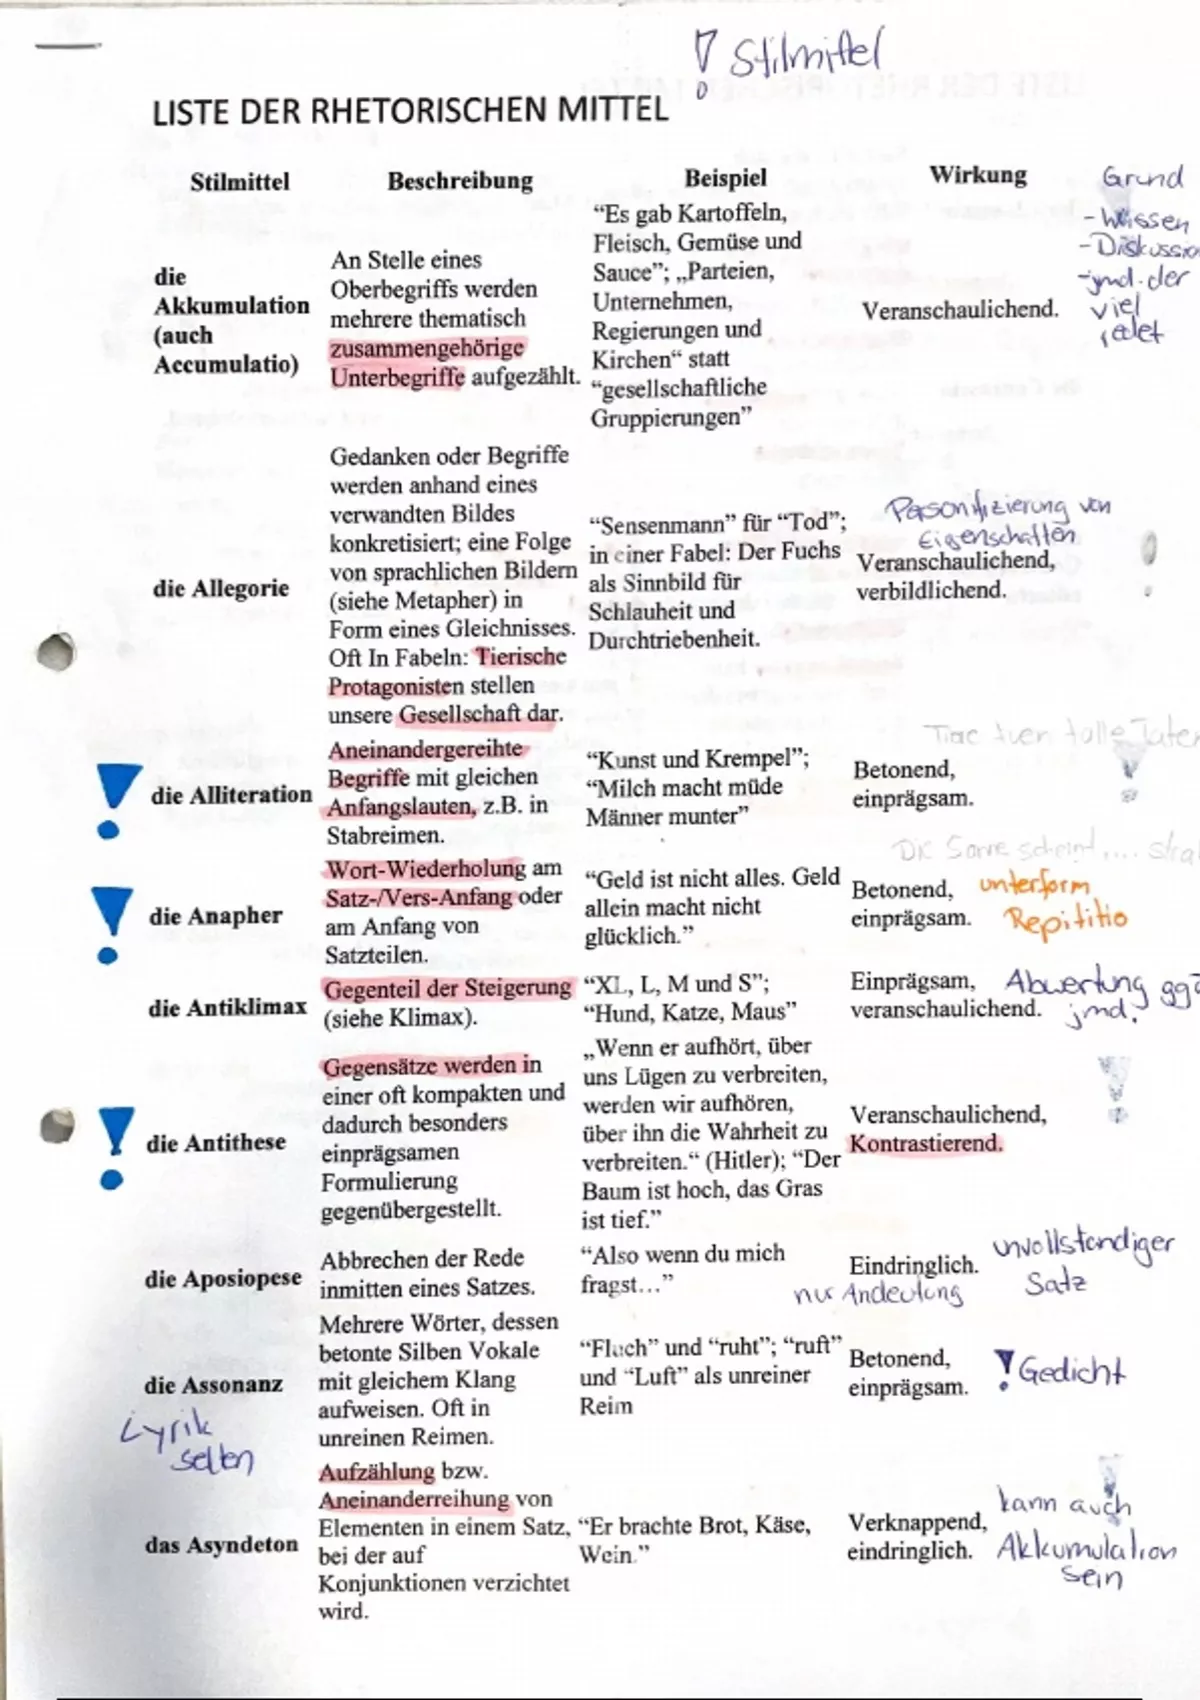 ! Stilmittel
LISTE DER RHETORISCHEN MITTEL
Stilmittel Beschreibung Beispiel Wirkung
Grund
- Wissen
- Diskussio
- jmd. der
viel
redet
die
Akkumulation
(auch
Accumulatio)
An Stelle eines
Oberbegriffs werden
mehrere thematisch
zusammengehörige
Unterbegriffe aufgezählt.
“Es gab Kartoffeln,
Fleisch, Gemüse und
Sauce”; „Parteien,
Unternehmen,
Regierungen und
Kirchen“ statt
“gesellschaftliche
Gruppierungen”
Veranschaulichend.
die Allegorie
Gedanken oder Begriffe
werden anhand eines
verwandten Bildes
konkretisiert; eine Folge
von sprachlichen Bildern
(siehe Metapher) in
Form eines Gleichnisses.
Oft In Fabeln: Tierische
Protagonisten stellen
unsere Gesellschaft dar.
“Sensenmann” für “Tod”;
in einer Fabel: Der Fuchs
als Sinnbild für
Schlauheit und
Durchtriebenheit.
Personifizierung von
Eigenschaften
Veranschaulichend,
verbildlichend.
! die Alliteration
Aneinandergereihte
Begriffe mit gleichen
Anfangslauten, z.B. in
Stabreimen.
“Kunst und Krempel”;
“Milch macht müde
Männer munter”
tuen tolle Taten
Betonend,
einprägsam.
! die Anapher
Wort-Wiederholung am
Satz-/Vers-Anfang oder
am Anfang von
Satzteilen.
“Geld ist nicht alles. Geld
allein macht nicht
glücklich.”
Die Sonne scheint....
Betonend,
einprägsam.
unterform
Repititio
die Antiklimax
Gegenteil der Steigerung
(siehe Klimax).
“XL, L, M und S”;
“Hund, Katze, Maus”
Einprägsam,
veranschaulichend.
Abwertung
jmd.
! die Antithese
Gegensätze werden in
einer oft kompakten und
dadurch besonders
einprägsamen
Formulierung
gegenübergestellt.
„Wenn er aufhört, über
uns Lügen zu verbreiten,
werden wir aufhören,
über ihn die Wahrheit zu
verbreiten.“ (Hitler); “Der
Baum ist hoch, das Gras
ist tief.”
Veranschaulichend,
Kontrastierend.
die Aposiopese
Abbrechen der Rede
inmitten eines Satzes.
“Also wenn du mich
fragst…”
Eindringlich.
nur Andeutung
unvollständiger
Satz
die Assonanz
Lyrik
selten
Mehrere Wörter, dessen
betonte Silben Vokale
mit gleichem Klang
aufweisen. Oft in
unreinen Reimen.
“Fluch” und “ruht”; “ruft”
und “Luft” als unreiner
Reim
Betonend,
einprägsam.
! Gedicht
das Asyndeton
Aufzählung bzw.
Aneinanderreihung von
Elementen in einem Satz,
bei der auf
Konjunktionen verzichtet
wird.
“Er brachte Brot, Käse,
Wein.”
Verknappend,
eindringlich.
kann auch
Akkumulation
sein